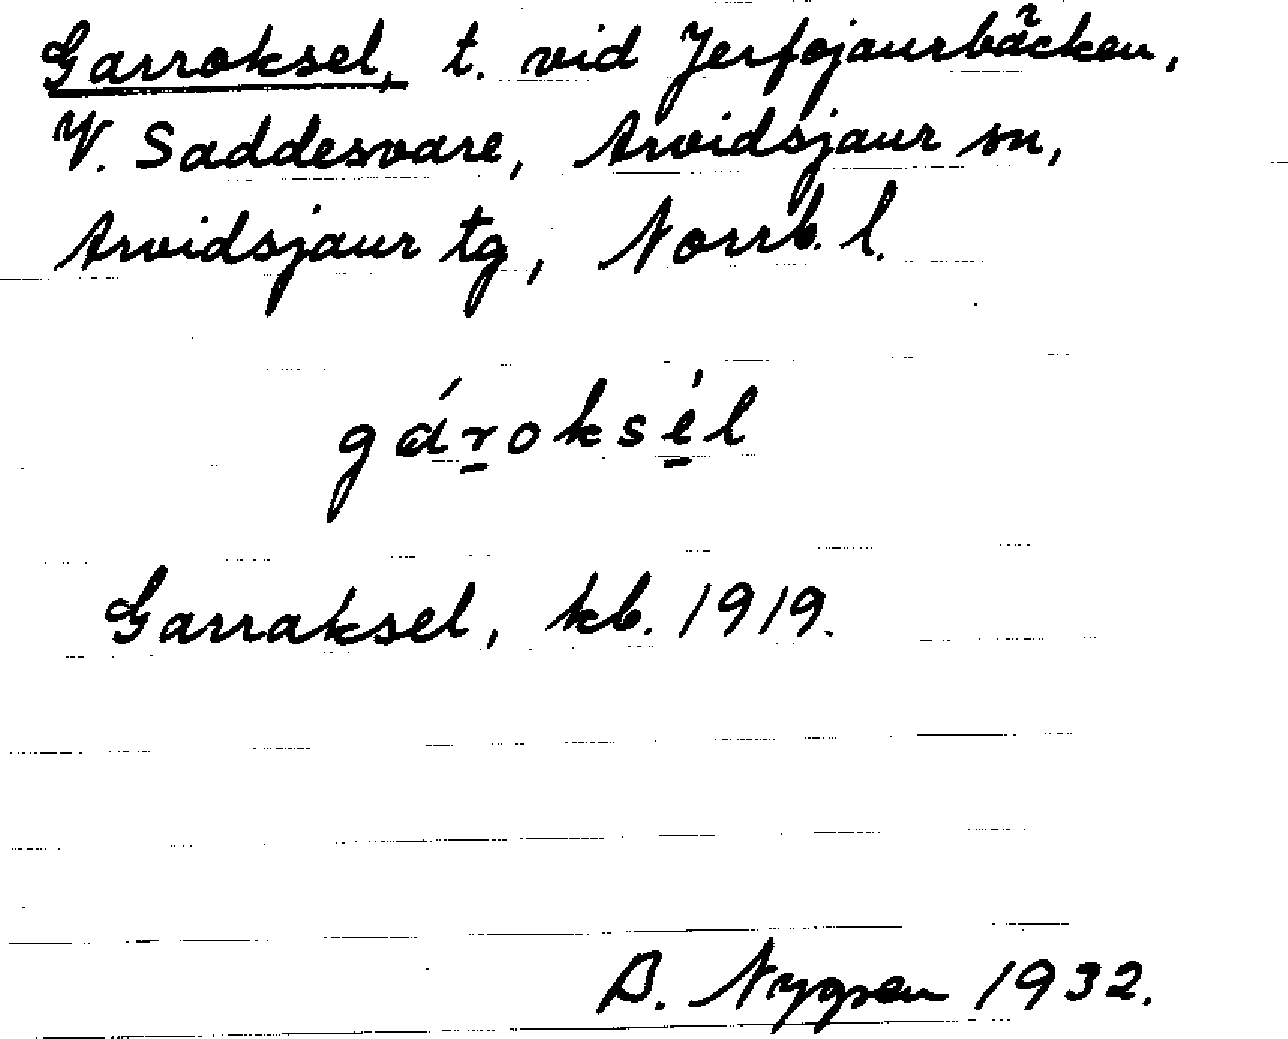 Garroksel, t. vid Jerfojaurbäcken,
V. Saddesvare, Arvidsjaur sn,
Arvidsjaur tg, Norrb. l.
gároksél
Garraksel, kb. 1919.
B. Nygren 1932.